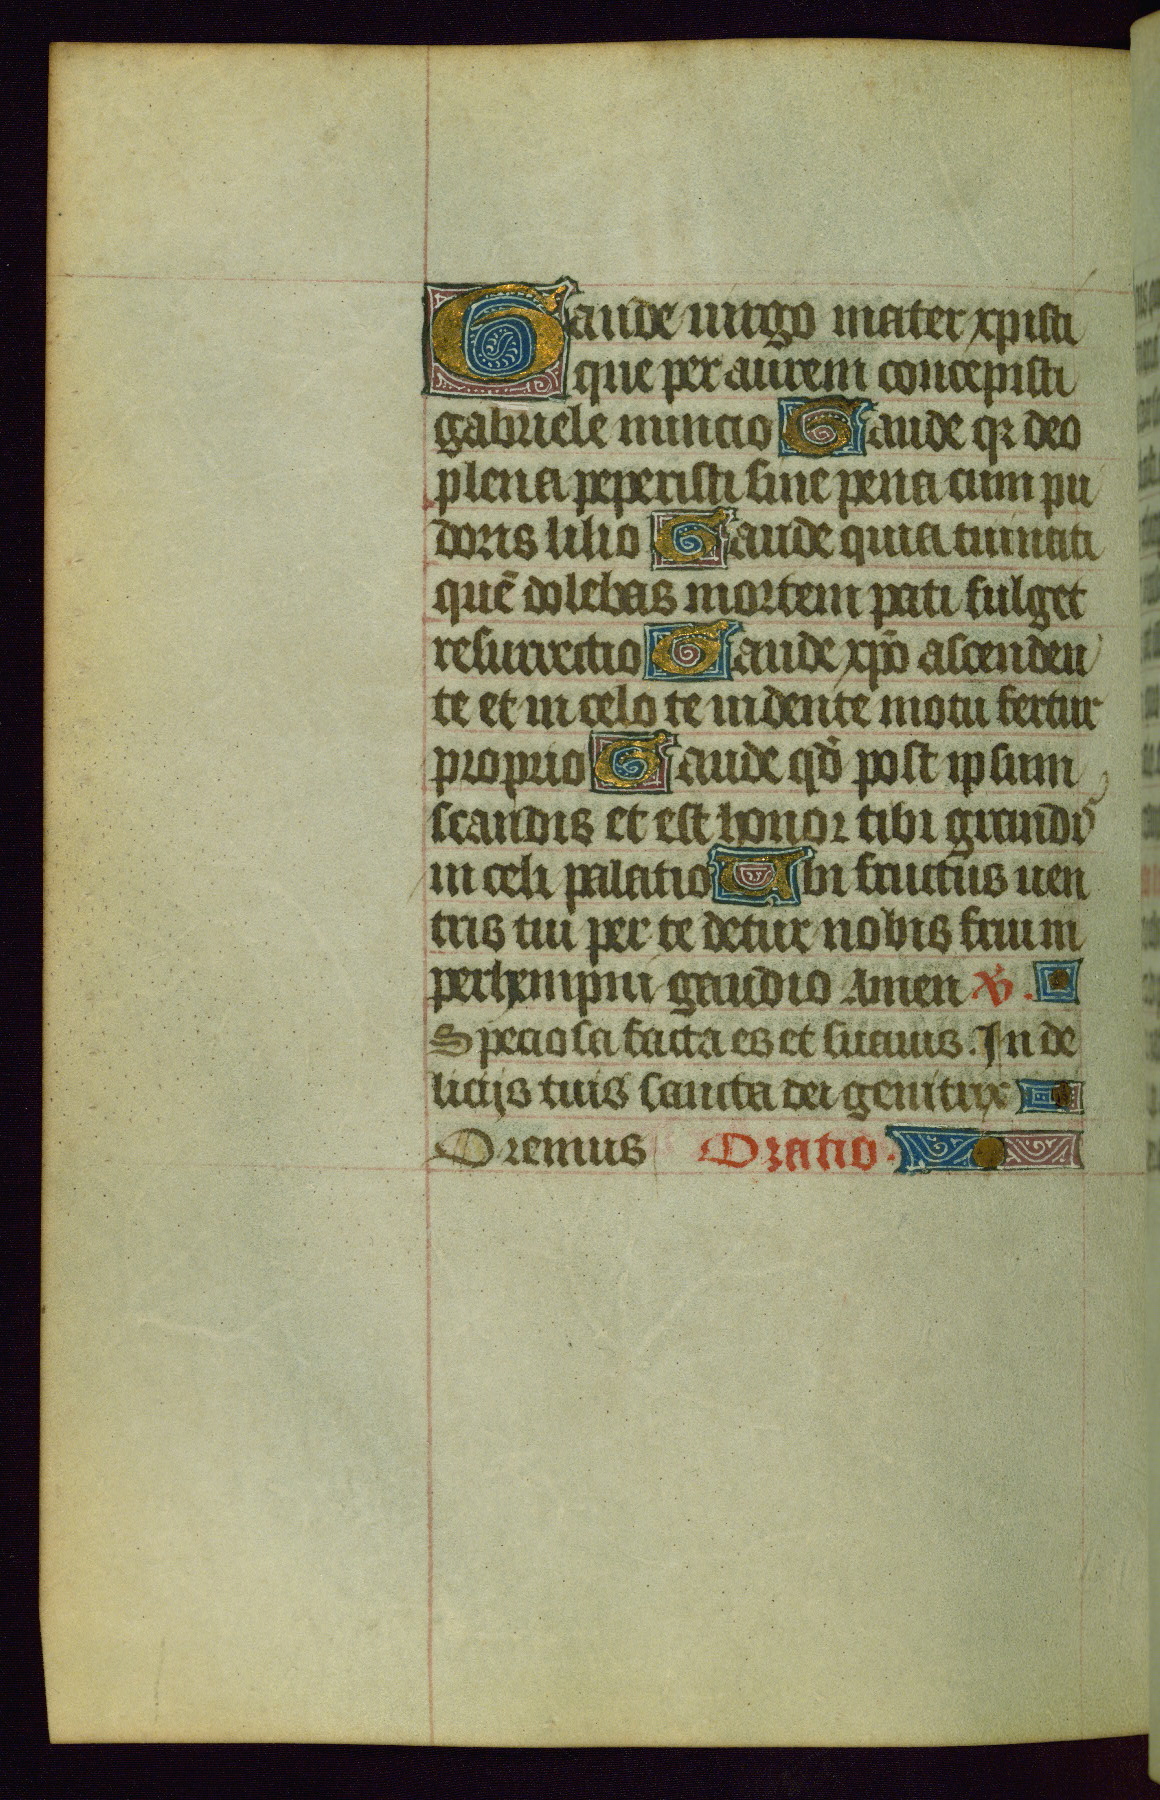 Gaude uirgo mater xpisti
que per aurem concepisti
gabriele nuncio Gaude qz deo
plena peperisti sine pena cum pu
doris lilio Gaude quia tui nati
quē dolebas mortem pati fulget
resurrectio Gaude xpō ascenden
te et in celo te uidente motu fertur
proprio Gaude qđ post ipsum
scandis et est honor tibi grandis
in celi palatio Ubi fructus uen
tris tui per te detur nobis frui in
perhempni gaudio Amen ℣.
Speciosa facta es et suauis. In de
licijs tuis sancta dei genitrix
Oremus Oratio.